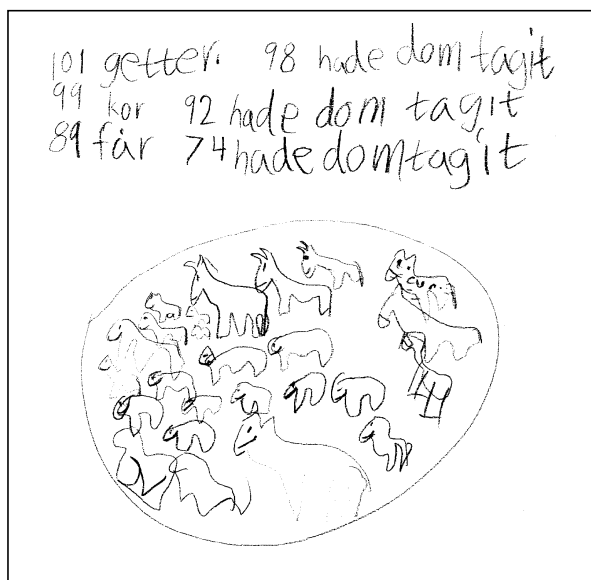 101 getter. 98 hade dom tagit
99 kor 92 hade dom tagit
89 får 74 hade dom tagit